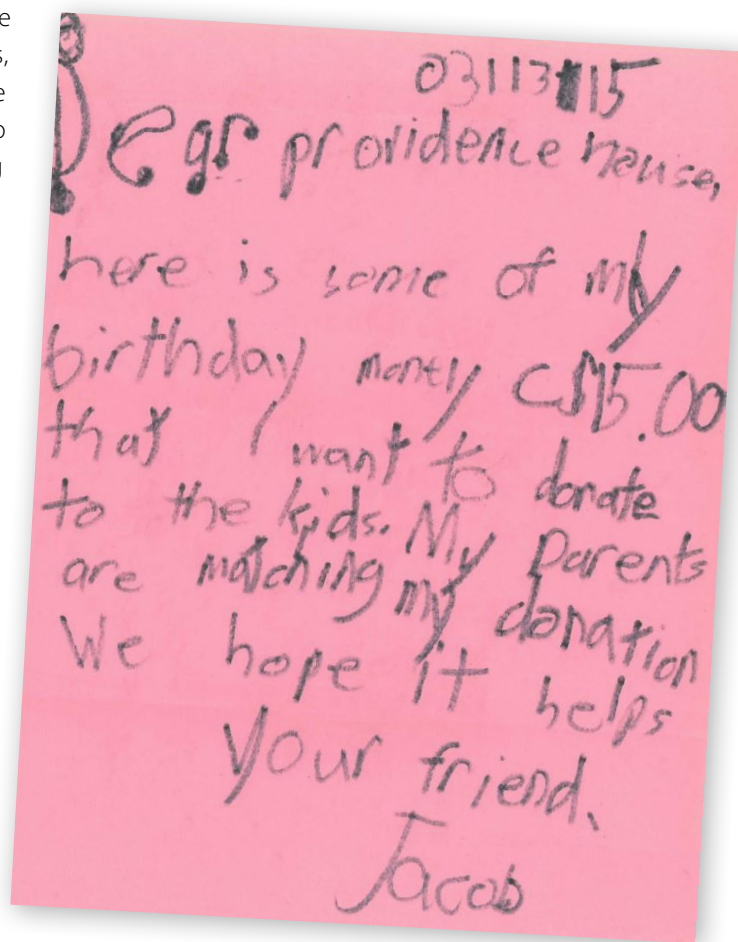 e
s,
e
o
g
03113115
Dear providence house,
here is some of my
birthday money C$15.00
that I want to donate
to the kids. My parents
are matching my donation
We hope it helps
your friend,
Jacob